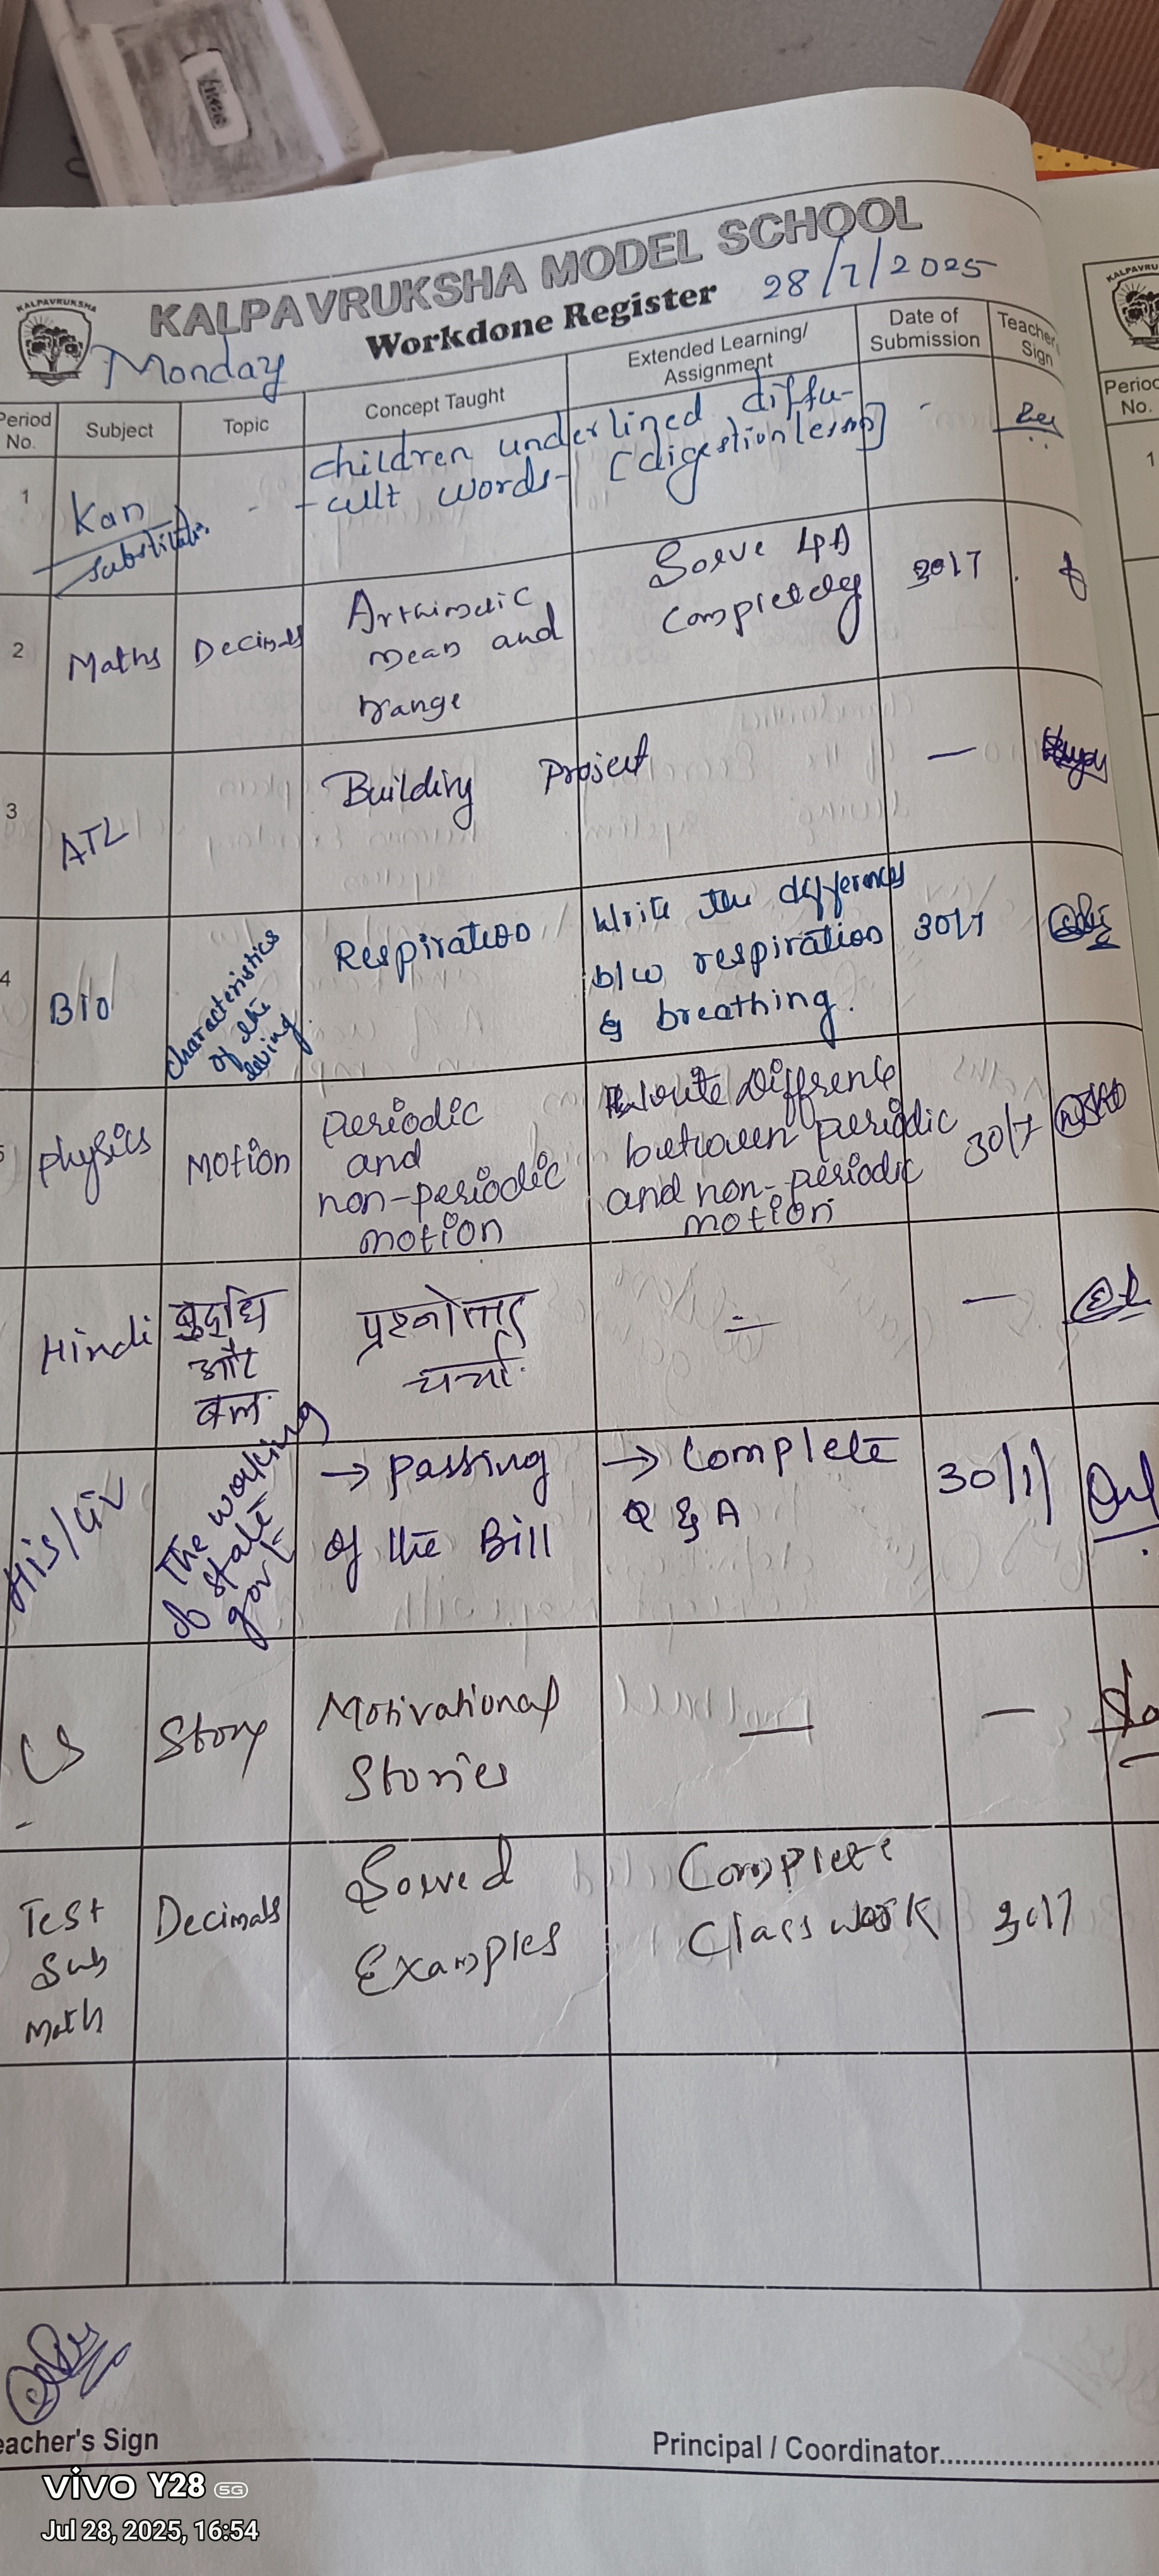 KALPAVRUKSHA
KALPAVRUKSHA MODEL SCHOOL
Workdone Register
28/7/2025
Monday
Period No.
Subject
Topic
Concept Taught
Extended Learning/ Assignment
Date of Submission
Teacher Sign
1
Kan
children underlined diffu-
-cult words- [digestion
2
Maths
Decimals
Arthimetic
mean and
range
Solve 4A
completely
30/7
3
ATL
Building Project
—
4
Bio
Characteristics
of the
living
Respiration
Write the differences
b/w respiration
& breathing.
30/7
Physics
Motion
Periodic
and
non-periodic
motion
Write Diffrence
between periodic
and non-periodic
motion
30/7
Hindi
बुद्धि
और
बल
प्रश्नोत्तर
चर्चा
—
His/Civ
The working
of state
govt
→ Passing
of the Bill
→ Complete
Q & A
30/7
CS
Story
Motivational
Stories
—
—
Test
Sub
Math
Decimals
Solved
Examples
Complete
Class work
30/7
eacher's Sign
Principal / Coordinator
KALPAVRU
Period
No.
1
vivo Y28 5G
Jul 28, 2025, 16:54